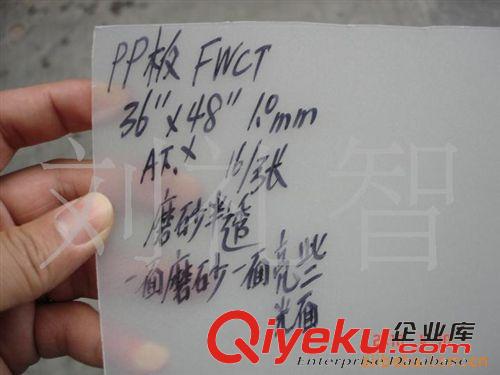 PP板 FWCT
36"x48" 1.0mm
AT.X 16/张
磨砂半透
一面磨砂一面亮些
光面
企业库
Qiyeku.com
Enterprise Database